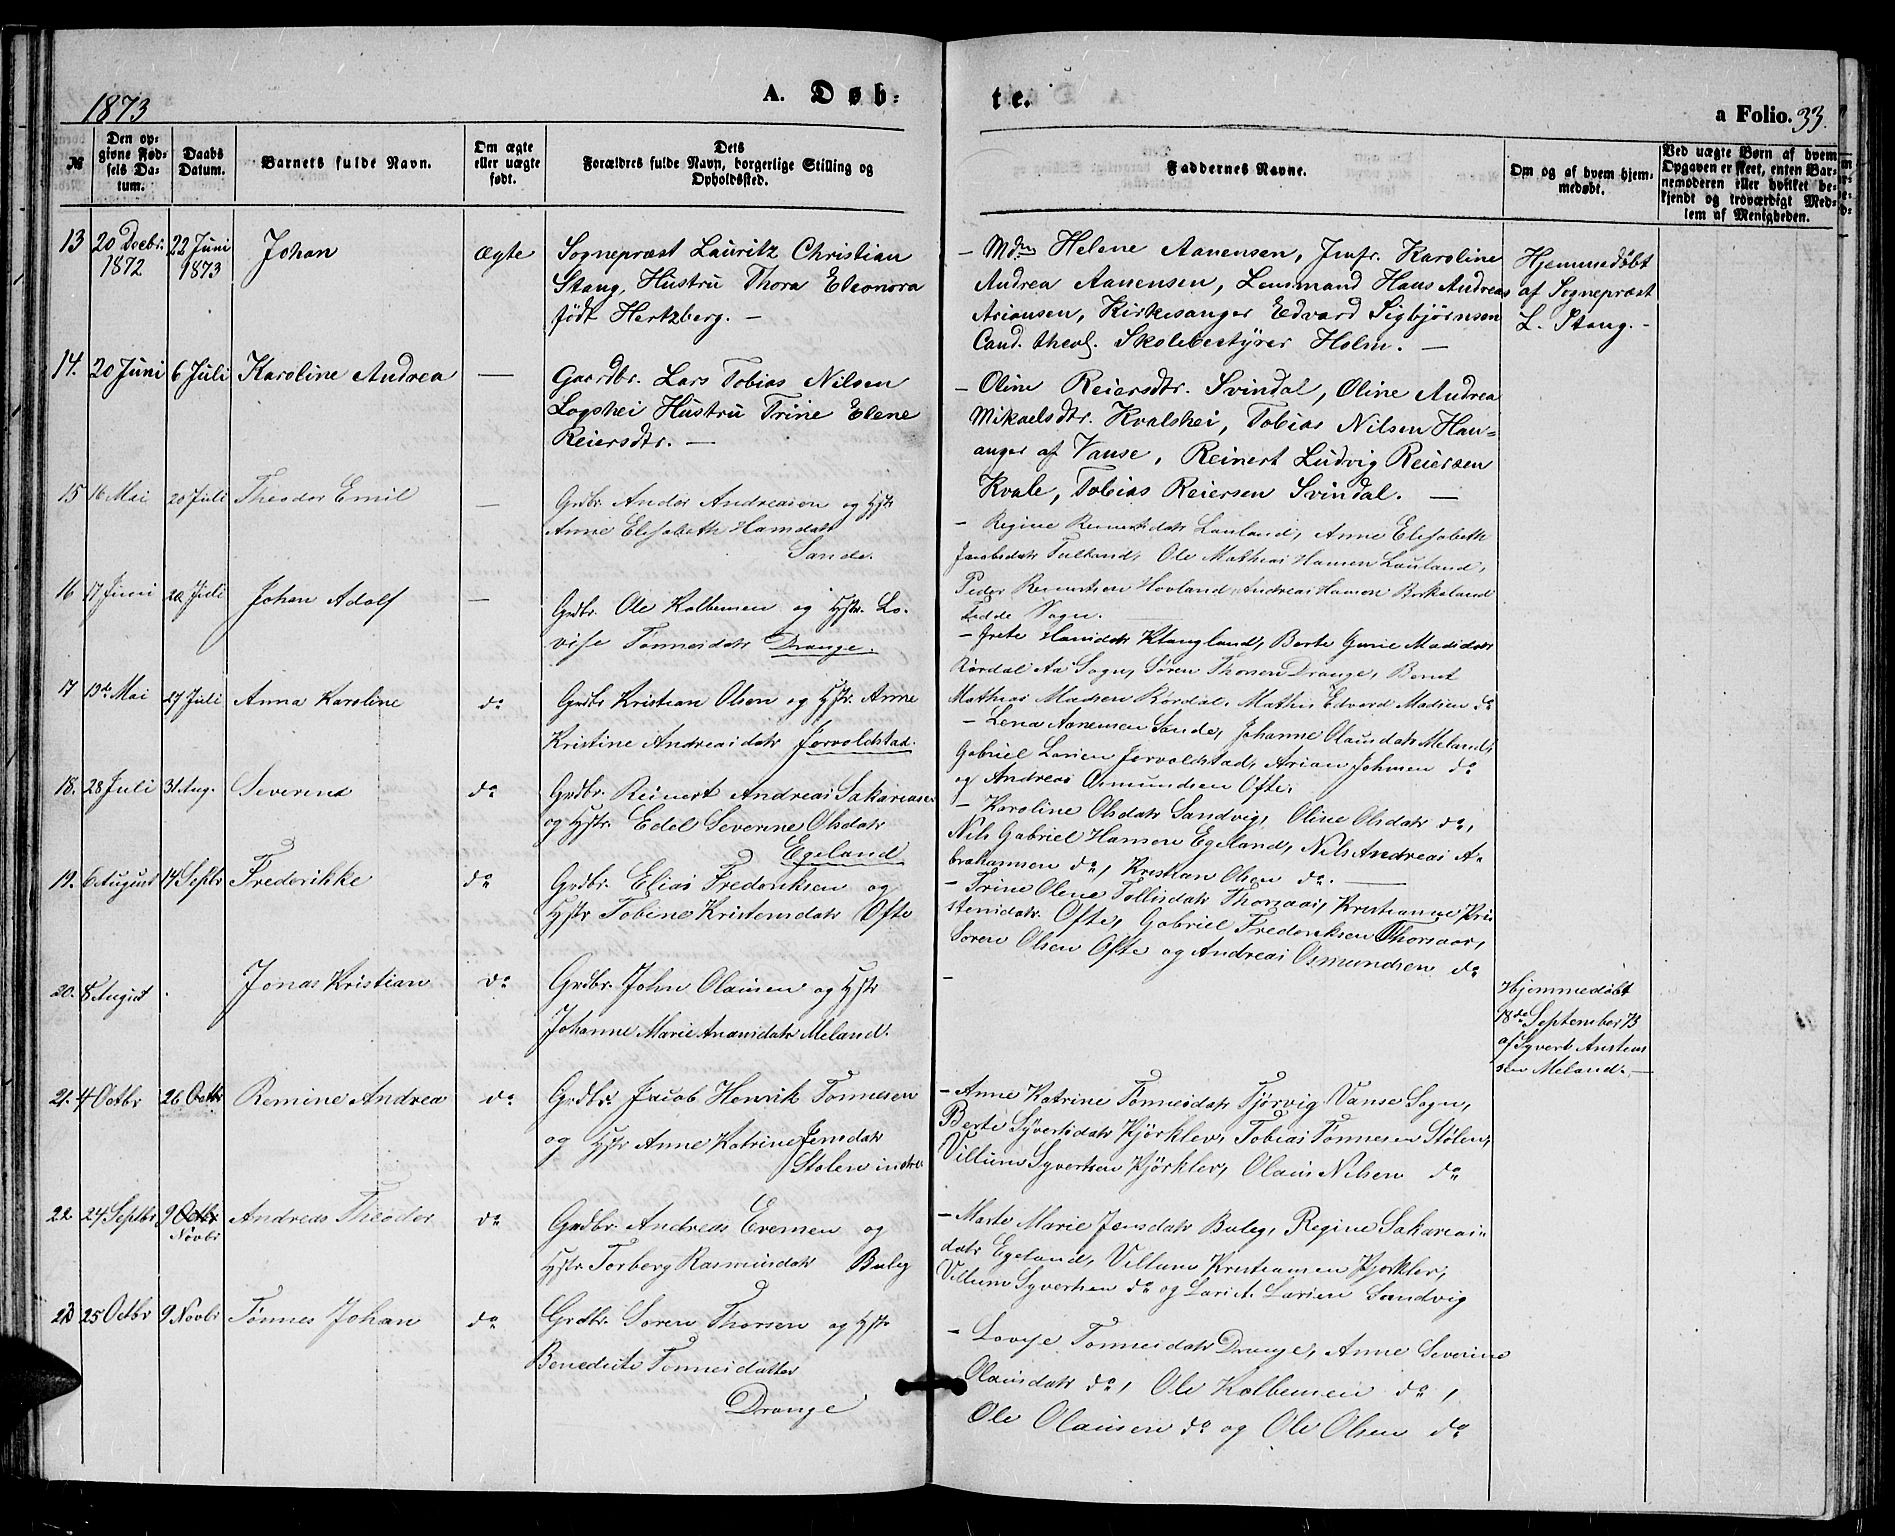 1873
A. Døb-
te.
a Folio. 33.
№
Den opgivne Fødsels Datum.
Daabs Datum.
Barnets fulde Navn.
Om ægte eller uægte født.
Dets Forældres fulde Navn, borgerlige Stilling og Opholdssted.
Faddernes Navne.
Om og af hvem hjemmedøbt.
Ved uægte Børn af hvem Opgaven er skeet, enten Barnemoderen eller hvilket bekjendt og troværdigt Medlem af Menigheden.
13 20 Decbr. 1872 22 Juni 1873 Johan ægte
Sognepræst Lauritz Christian
Stang, Hustru Thora Eleonora
født Hertzberg. —
— Mdm Helene Aanensen, Jmfr. Karoline
Andrea Aanensen, Lensmand Hans Andreas
Arians­en, Kirkesanger Edvard Sigbjørnsen
Cand. theol. Skolebestyrer Holm. —
Hjemmedøbt
af Sognepræst
L. Stang. -
14. 20 Juni 6 Juli Karoline Andrea —
Gaardbr. Lars Tobias Nilsen
Log­shei Hustru Trine Elene
Reiersdtr. —
— Oline Reiersdtr. Svindal, Oline Andrea
Mikaelsdtr. Kvalshei, Tobias Nilsen Hau-
anger af Vanse, Reinert Ludvig Reiersen
Kvale, Tobias Reiersen Svindal. —
15 16 Mai 20 Juli Theodor Emil —
Grdbr. Andor Andreasen og Hstr
Anne Elisabeth Hansdatr
Sande.
— Regine Reinertsdatr Lauland, Anne Elisabeth
Jacobsdatr Tulland, Ole Mathias Hansen Lauland,
Peder Reinertsen Hovland, Andreas Hansen Birkeland
Fedde Sogn.
16 17 Juni 20 Juli Johan Adolf —
Grdbr. Ole Kolbensen og Hstr. Lo-
vise Tønnesdatr Drange.
— Grete Hansdatr Klungland, Berte Gurie Madsdatr
Rørdal Aa Sogn, Søren Thorsen Drange, Bernt
Mathias Madsen Rørdal, Mathis Edvard Madsen do
17 13de Mai 27 Juli Anna Karoline do
Grdbr Kristian Olsen og Hstr. Anne
Kristine Andreasdatr Jervoldstad.
— Lena Aanensen Sande, Johanne Olausdatr Meland,
Gabriel Larsen Jervoldstad, Arian Johnsen do
og Andreas Osmundsen Ofte.
18. 28 Juli 31 Aug. Severine do
Grdbr. Reinert Andreas Sakariasen
og Hstr. Edel Severine Olsdatr
Egeland
— Karoline Olsdatr Sandvig, Oline Olsdatr do,
Nils Gabriel Hansen Egeland, Nils Andreas A-
brahamsen do, Kristian Olsen do. —
19. 6 August 14 Septbr Frederikke do
Grdbr. Elias Frederiksen og
Hstr Tobine Kristensdatr Ofte
— Trine Olene Tollisdatr Thorsaas, Kristianne Kri-
stensdatr Ofte, Gabriel Frederiksen Thorsaas,
Søren Olsen Ofte og Andreas Osmundsen do
20. 8 August . Jonas Kristian do
Grdbr. John Olausen og Hstr
Johanne Marie Ananiasdatr Meland.
—
Hjemmedøbt
18de September 73
af Syvert Austens
sen Meland. —
21. 4 Octbr 26 Octbr Remine Andrea do
Grdbr. Jacob Henrik Tønnesen
og Hstr Anne Katrine Jensdatr
Stølen indre
— Anne Katrine Tønnesdatr Tjørvig Vanse Sogn,
Berte Syvertsdatr Kjørklev, Tobias Tønnesen Stølen,
Villum Syvertsen Kjørklev, Olaus Nilsen do
22 24 Septbr. 9 Octbr Novbr Andreas Theodor do
Grdbr Andreas Evensen og
Hstr Torberg Rasmusdatr Buleg
— Marte Marie Jensdatr Buleg, Regine Sakarias-
datr Egeland, Villum Kristiansen Kjørklev,
Villum Syvertsen do og Larits Larsen Sandvig
23 25 Octbr 9 Novbr Tønnes Johan do
Grdbr. Søren Thorsen og Hstr
Benedicte Tønnesdatter
Drange
— Lovise Tønnesdatr Drange, Anne Severine
Olausdatr do, Ole Kolbensen do,
Ole Olausen do og Ole Olsen do